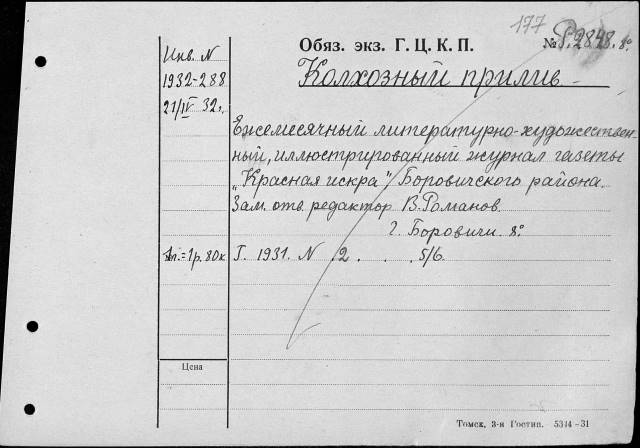 177
Обяз. экз. Г. Ц. К. П. № Р.2848. 8°
Колхозный прилив
Инв. N
1932-288
21/IV 32.
Ежемесячный литературно-художествен-
ный, иллюстрированный журнал газеты
„Красная искра", Боровичского района.
Зам. отв. редактор В. Романов.
г. Боровичи. 8°.
1р. 80к. Г. 1931. N .2 . . . 5/6.
Цена
Томск, 3-я Гостип. 5314-31